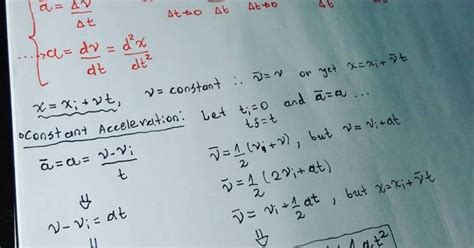 ā = Δv/Δt
Δt→0 Δt Δt→0 Δt
a = dv/dt = d²x/dt²
x = xᵢ + vt, v = constant ∴ v̄ = v or yet x = xᵢ + v̄t
Constant Acceleration: Let tᵢ = 0 and ā = a ...
tf = t
ā = a = v - vᵢ / t
v̄ = 1/2 (vᵢ + v), but v = vᵢ + at
⇓
v̄ = 1/2 (2vᵢ + at)
v - vᵢ = at
v̄ = vᵢ + 1/2 at, but x = xᵢ + v̄t
⇓
1 at²